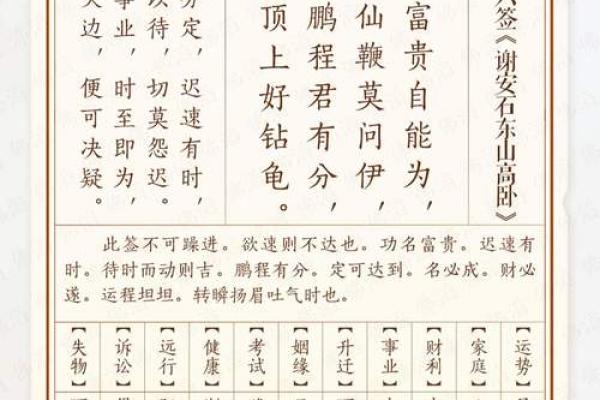 签《谢安石东山高卧》
富贵自能为，
仙鞭莫问伊，
鹏程君有分，
顶上好钻龟。
定，迟速有时，
以待，切莫怨迟。
事业，时至即为，
边，便可决疑。
此签不可躁进。欲速则不达也。功名富贵。迟速有
时。待时而动则吉。鹏程有分。定可达到。名必成。财必
遂。运程坦坦。转瞬扬眉吐气时也。
【运势】
【家庭】
【财利】
【事业】
【升迁】
【姻缘】
【考试】
【健康】
【远行】
【诉讼】
【失物】